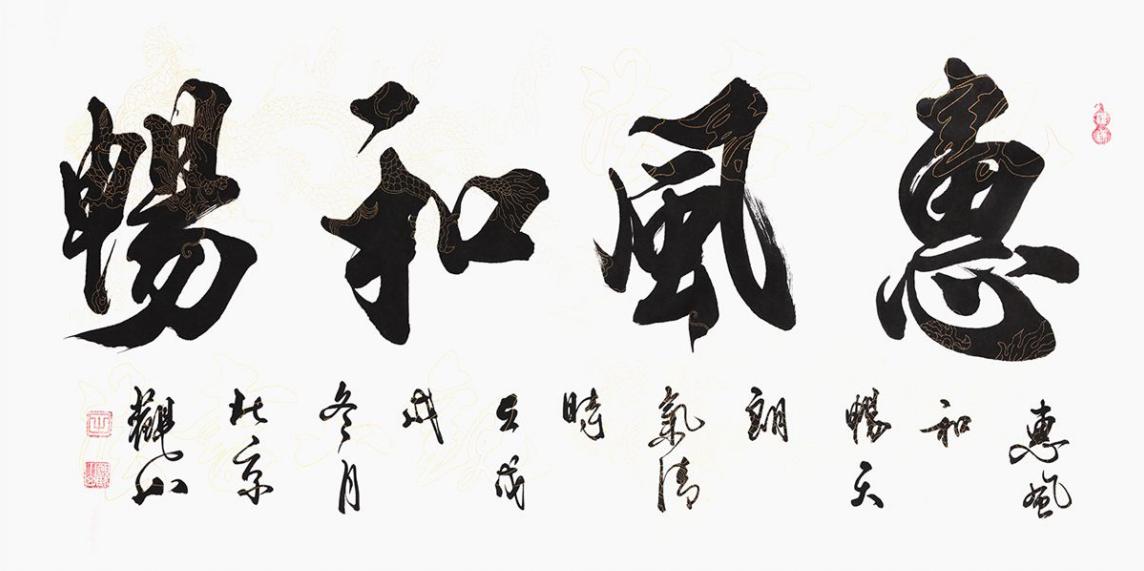 惠風和暢
惠風
和
暢天
朗
氣清
時
在戊
戌
冬月
北京
觀山